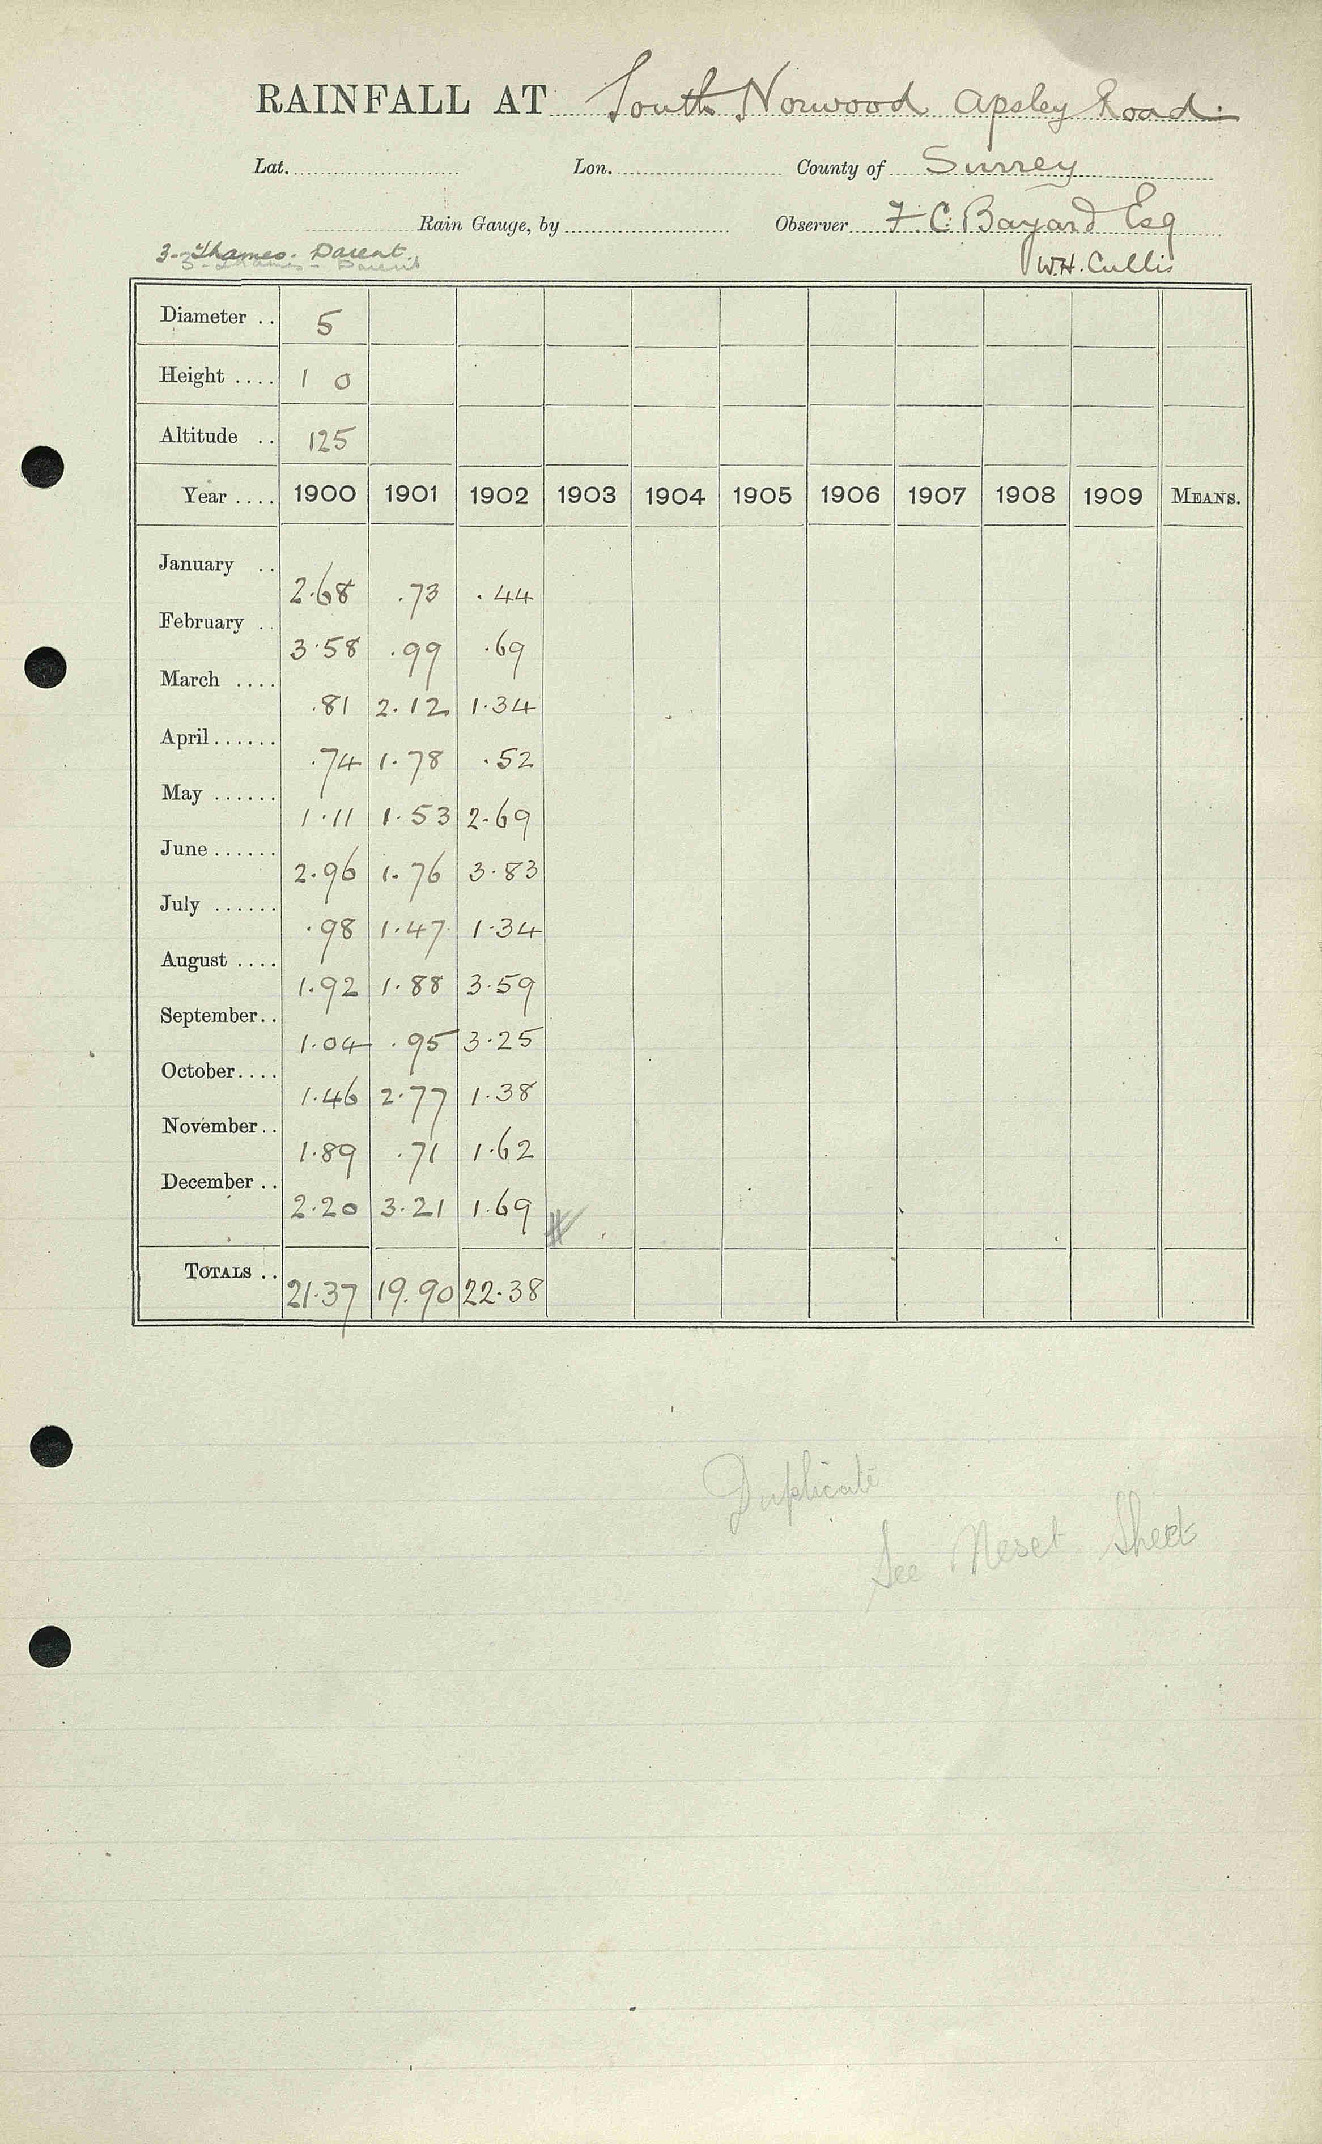 RAINFALL AT South Norwood Apsley Road.
Lat. Lon. County of Surrey
Rain Gauge, by Observer F. C. Bayard Esq
3 - Thames - Parent W.H. Cullis
Diameter .. 5
Height .... 1 0
Altitude .. 125
Year .... 1900 1901 1902 1903 1904 1905 1906 1907 1908 1909 MEANS.
January .. 2.68 .73 .44
February .. 3.58 .99 .69
March .... .81 2.12 1.34
April...... .74 1.78 .52
May ...... 1.11 1.53 2.69
June ...... 2.96 1.76 3.83
July ...... .98 1.47 1.34
August .... 1.92 1.88 3.59
September.. 1.04 .95 3.25
October.... 1.46 2.77 1.38
November.. 1.89 .71 1.62
December .. 2.20 3.21 1.69
TOTALS .. 21.37 19.90 22.38
Duplicate
See Sheet